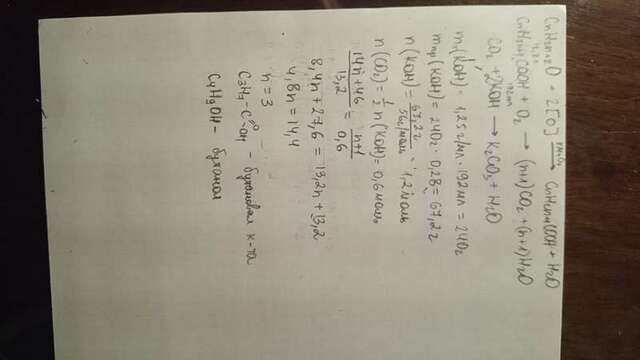 CnH2n+2O + 2[O] → CnH2n+1COOH + H2O
CnH2n+1COOH + O2 → (n+1)CO2 + (n+1)H2O
CO2 + 2KOH → K2CO3 + H2O
mр(KOH) = 1,25 г/мл · 192 мл = 240 г
mпр(KOH) = 240 г · 0,28 = 67,2 г
n(KOH) = 67,2 г / 56 г/моль = 1,2 моль
n(CO2) = 1/2 n(KOH) = 0,6 моль
14n+46 / 13,2 = n+1 / 0,6
8,4n + 27,6 = 13,2n + 13,2
4,8n = 14,4
n = 3
C3H7-C=O-OH - бутановая к-та
C4H9OH - бутанол